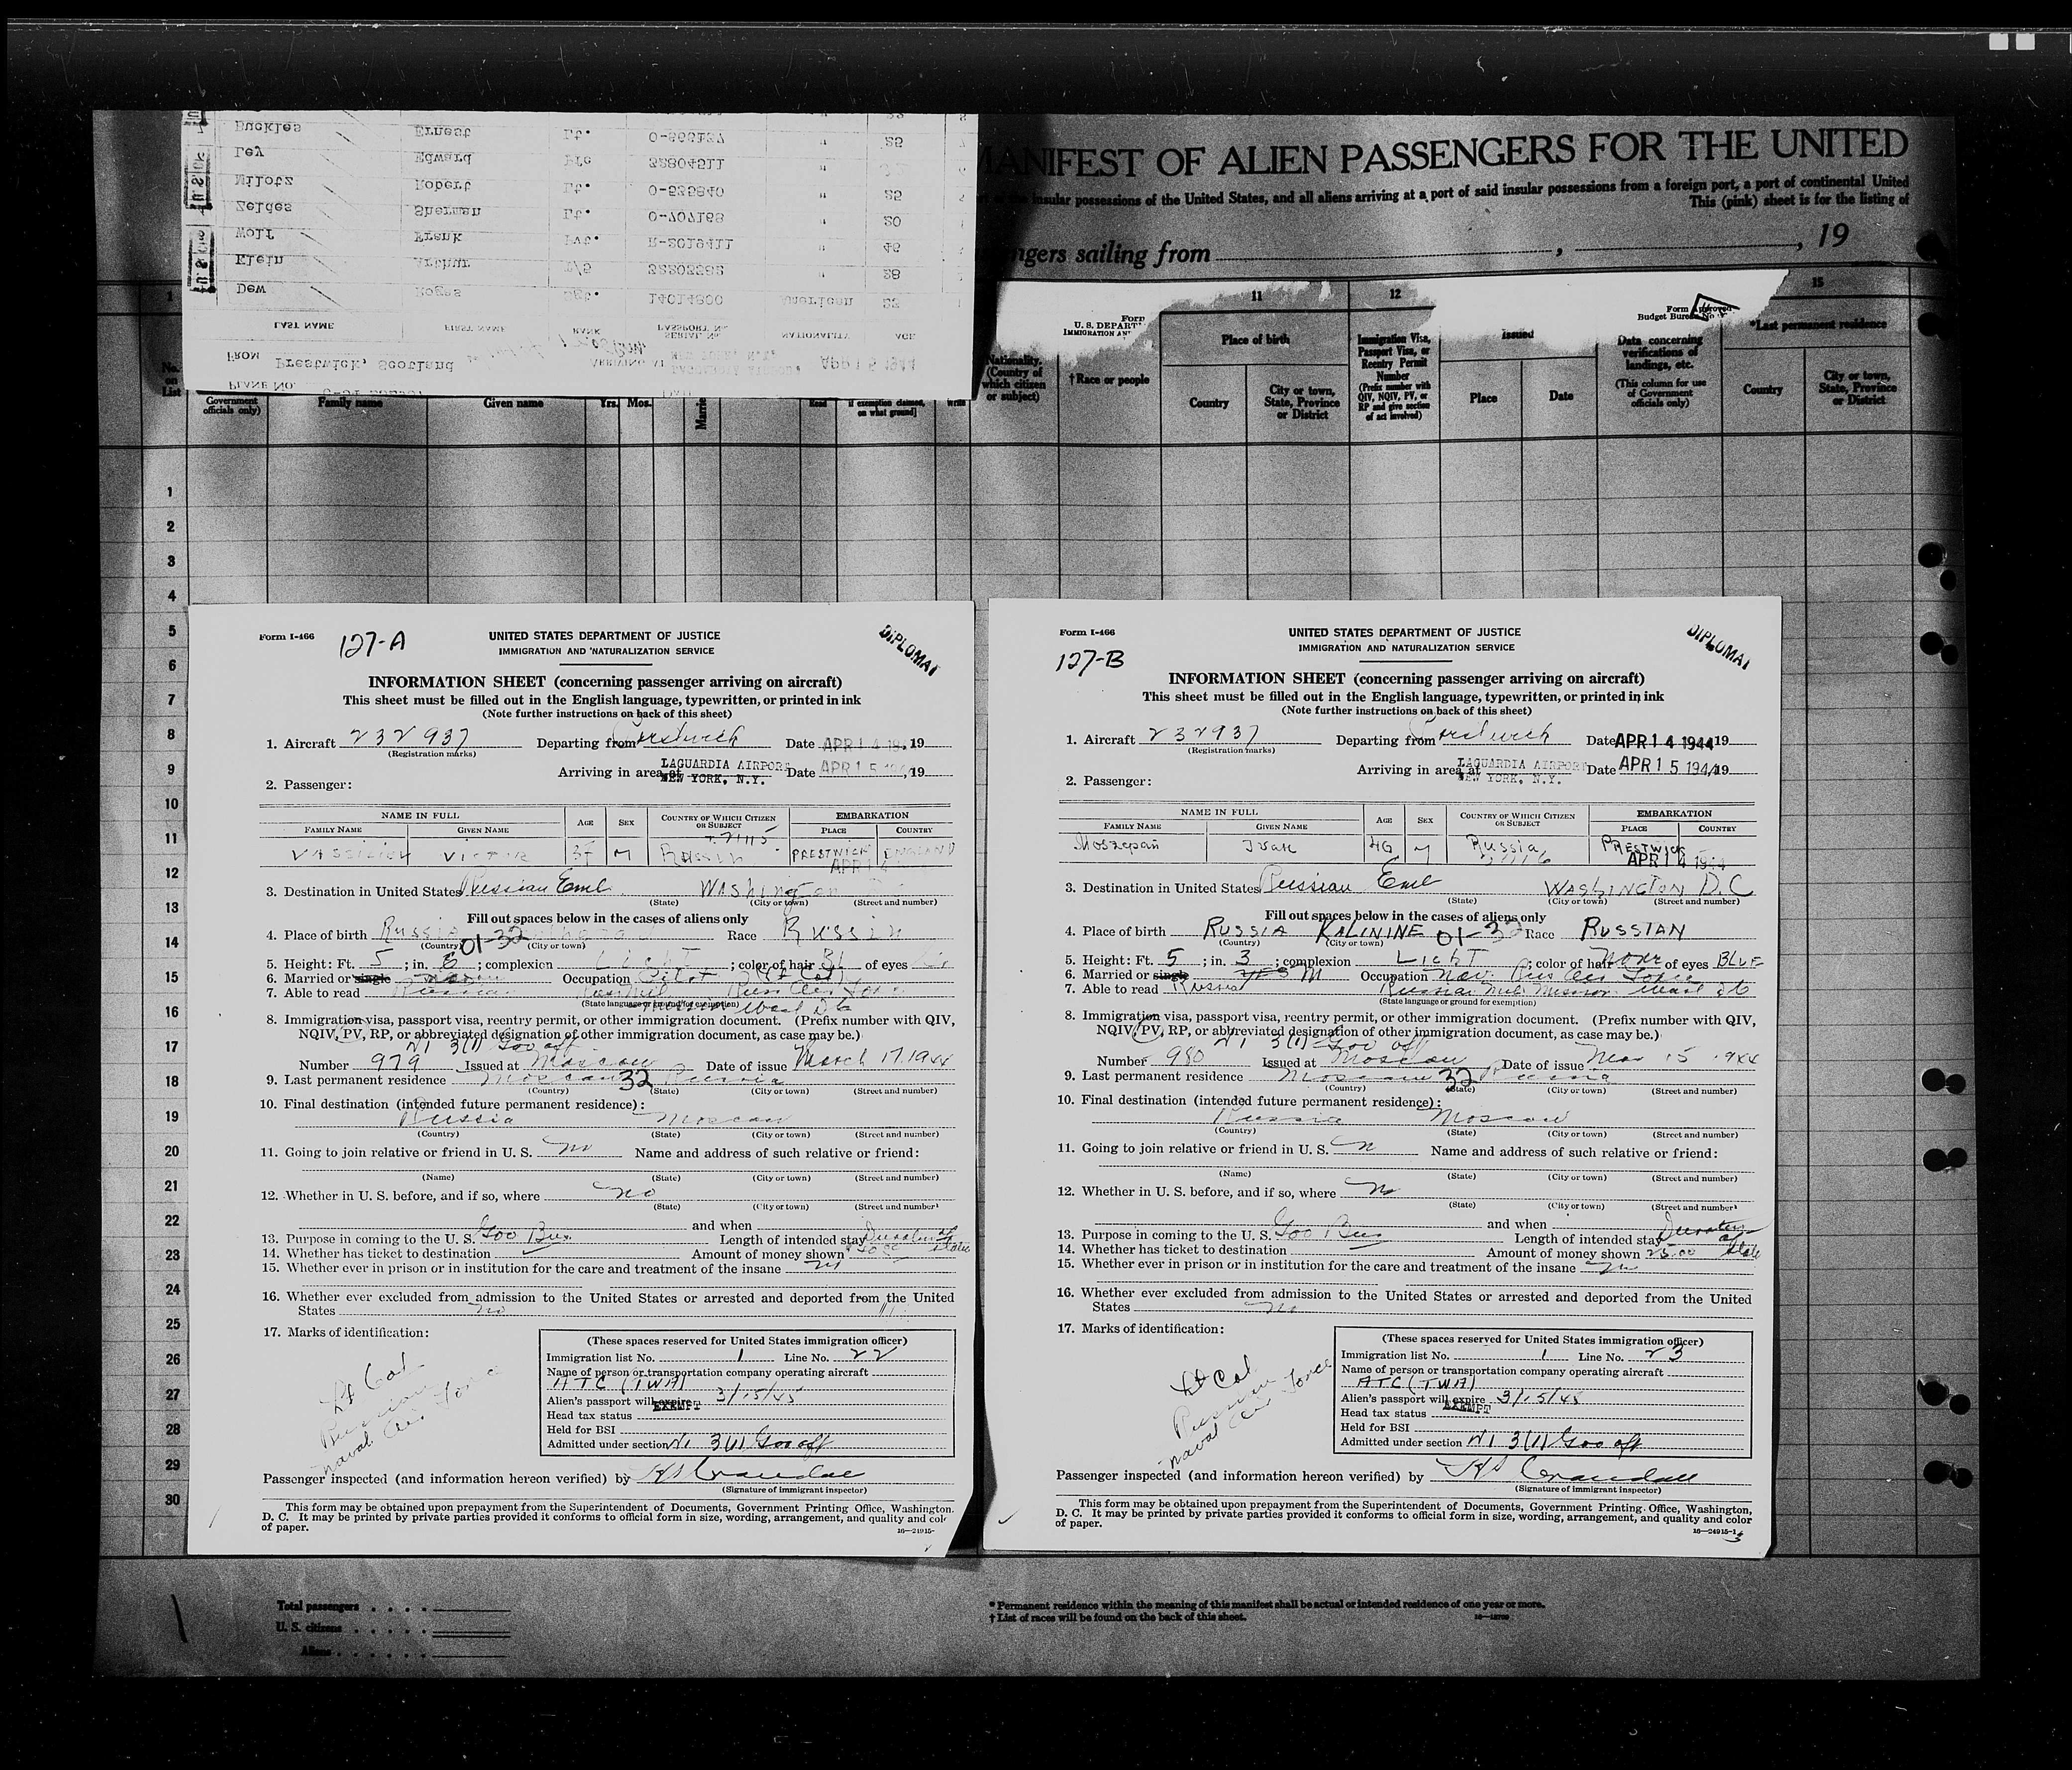 MANIFEST OF ALIEN PASSENGERS FOR THE UNITED
insular possessions of the United States, and all aliens arriving at a port of said insular possessions from a foreign port, a port of continental United
This (pink) sheet is for the listing of
ngers sailing from , , 19
Buckles Ernest Lt. 25
Ley Edward Pfc 32804511 "
Milotz Robert Lt. O-535840 " 25
Zeldes Sherman Lt. O-707168 " 20
Wolf Frank Pvt. R-2019411 " 45
Klein Arthur T/5 " 28
Dew Sgt. 14014800 American
LAST NAME FIRST NAME RANK PASSPORT No. SERIAL No. NATIONALITY AGE
FROM Prestwick, Scotland ARRIVING AT APR 15 1944
PLANE NO.
11 12 15
U. S. DEPART
IMMIGRATION AN
Form Approved
Budget Bureau No.
No. on List
Government officials only)
Family name
Given name
Yrs. Mos.
Read
if exemption claimed, on what ground]
Nationality. (Country of which citizen or subject)
†Race or people
Place of birth
Country
City or town, State, Province or District
Immigration Visa, Passport Visa, or Reentry Permit Number
(Prefix number with QIV, NQIV, PV, or RP and give section of act involved)
Issued
Place
Date
Data concerning verifications of landings, etc.
(This column for use of Government officials only)
*Last permanent residence
Country
City or town, State, Province or District
1
2
3
4
5
6
7
8
9
10
11
12
13
14
15
16
17
18
19
20
21
22
23
24
25
26
27
28
29
30
Form I-466
127-A
UNITED STATES DEPARTMENT OF JUSTICE
IMMIGRATION AND NATURALIZATION SERVICE
DIPLOMAT
INFORMATION SHEET (concerning passenger arriving on aircraft)
This sheet must be filled out in the English language, typewritten, or printed in ink
(Note further instructions on back of this sheet)
1. Aircraft 232937 Departing from Date APR 14 19
(Registration marks)
Arriving in area of LAGUARDIA AIRPORT NEW YORK, N.Y. Date APR 15 , 19
2. Passenger:
NAME IN FULL AGE SEX COUNTRY OF WHICH CITIZEN OR SUBJECT EMBARKATION
FAMILY NAME GIVEN NAME PLACE COUNTRY
VICTOR M PRESTWICK ENGLAND
3. Destination in United States Russian Emb Washington
(State) (City or town) (Street and number)
Fill out spaces below in the cases of aliens only
4. Place of birth Russia 01-32 Race Russian
(Country) (City or town)
5. Height: Ft. 5 ; in. 6 ; complexion LIGHT ; color of hair Bl of eyes
6. Married or single Occupation Pilot
7. Able to read Russian
(State language or ground for exemption)
8. Immigration visa, passport visa, reentry permit, or other immigration document. (Prefix number with QIV,
NQIV, PV, RP, or abbreviated designation of other immigration document, as case may be.)
3(1) Gov off
Number 979 Issued at Moscow Date of issue March 17, 1944
9. Last permanent residence Moscow 32 Russia
(Country) (State) (City or town) (Street and number)
10. Final destination (intended future permanent residence):
Russia Moscow
(Country) (State) (City or town) (Street and number)
11. Going to join relative or friend in U. S. no Name and address of such relative or friend:
(Name) (State) (City or town) (Street and number)
12. Whether in U. S. before, and if so, where no
(State) (City or town) (Street and number)
and when
13. Purpose in coming to the U. S. Gov Bus. Length of intended stay Duration of
14. Whether has ticket to destination Amount of money shown
15. Whether ever in prison or in institution for the care and treatment of the insane no
16. Whether ever excluded from admission to the United States or arrested and deported from the United
States no
17. Marks of identification:
Lt Col
Russian
naval Air Force
(These spaces reserved for United States immigration officer)
Immigration list No. 1 Line No. 22
Name of person or transportation company operating aircraft
ATC (TWA)
Alien's passport will expire 3/15/45
Head tax status EXEMPT
Held for BSI
Admitted under section 3(1) Gov off
Passenger inspected (and information hereon verified) by Crandall
(Signature of immigrant inspector)
This form may be obtained upon prepayment from the Superintendent of Documents, Government Printing Office, Washington,
D. C. It may be printed by private parties provided it conforms to official form in size, wording, arrangement, and quality and col
of paper.
16—24915-
Form I-466
127-B
UNITED STATES DEPARTMENT OF JUSTICE
IMMIGRATION AND NATURALIZATION SERVICE
DIPLOMAT
INFORMATION SHEET (concerning passenger arriving on aircraft)
This sheet must be filled out in the English language, typewritten, or printed in ink
(Note further instructions on back of this sheet)
1. Aircraft 232937 Departing from Date APR 14 1944 19
(Registration marks)
Arriving in area at LAGUARDIA AIRPORT NEW YORK, N.Y. Date APR 15 1944 19
2. Passenger:
NAME IN FULL AGE SEX COUNTRY OF WHICH CITIZEN OR SUBJECT EMBARKATION
FAMILY NAME GIVEN NAME PLACE COUNTRY
Ivan 46 M Russia PRESTWICK
APR 14 1944
3. Destination in United States Russian Emb WASHINGTON D.C
(State) (City or town) (Street and number)
Fill out spaces below in the cases of aliens only
4. Place of birth RUSSIA KALININE 01-32 Race RUSSIAN
(Country) (City or town)
5. Height: Ft. 5 ; in. 3 ; complexion LIGHT ; color of hair None of eyes BLUE
6. Married or single yes M Occupation Nav. Rus Air Force
7. Able to read Russia Russian Mil Mission Wash DC
(State language or ground for exemption)
8. Immigration visa, passport visa, reentry permit, or other immigration document. (Prefix number with QIV,
NQIV, PV, RP, or abbreviated designation of other immigration document, as case may be.)
3(1) Gov off
Number 980 Issued at Moscow Date of issue Mar 15 1944
9. Last permanent residence Moscow 32 Russia
(Country) (State) (City or town) (Street and number)
10. Final destination (intended future permanent residence):
Russia Moscow
(Country) (State) (City or town) (Street and number)
11. Going to join relative or friend in U. S. n Name and address of such relative or friend:
(Name) (State) (City or town) (Street and number)
12. Whether in U. S. before, and if so, where no
(State) (City or town) (Street and number)
and when
13. Purpose in coming to the U. S. Gov Bus Length of intended stay Duration of
14. Whether has ticket to destination Amount of money shown 25.00
15. Whether ever in prison or in institution for the care and treatment of the insane no
16. Whether ever excluded from admission to the United States or arrested and deported from the United
States no
17. Marks of identification:
Lt Col
Russian
naval Air Force
(These spaces reserved for United States immigration officer)
Immigration list No. 1 Line No. 23
Name of person or transportation company operating aircraft
ATC (TWA)
Alien's passport will expire 3/15/45
Head tax status EXEMPT
Held for BSI
Admitted under section 3(1) Gov off
Passenger inspected (and information hereon verified) by Crandall
(Signature of immigrant inspector)
This form may be obtained upon prepayment from the Superintendent of Documents, Government Printing Office, Washington,
D. C. It may be printed by private parties provided it conforms to official form in size, wording, arrangement, and quality and color
of paper.
16—24915-1
Total passengers
U. S. citizens
Aliens
* Permanent residence within the meaning of this manifest shall be actual or intended residence of one year or more.
† List of races will be found on the back of this sheet.